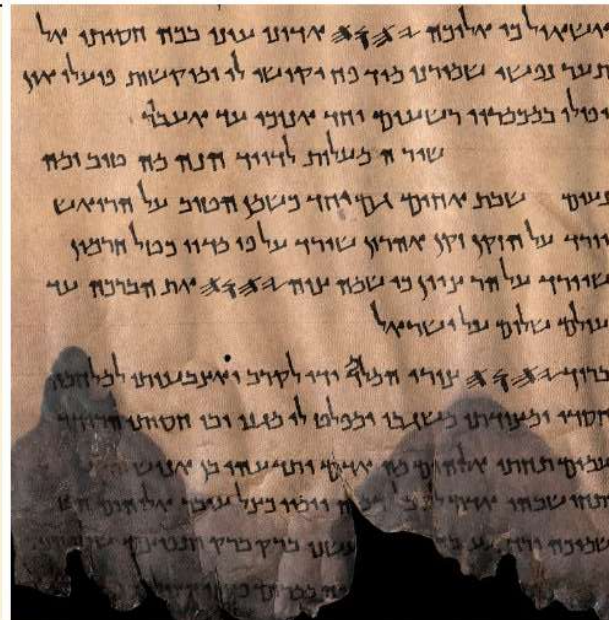 כי אליכה 𐤉𐤄𐤅𐤄 אדוני עיני בכה חסיתי אל
תער נפשי שמורני מיד פח יקושו לי ומוקשות פועלי און
יפולו במכמריו רשעים יחד אנוכי עד אעבר
שיר המעלות לדויד הנה מה טוב ומה
נעים שבת אחים גם יחד כשמן הטוב על הרואש
יורד על הזקן זקן אהרון שירד על פי מדיו כטל חרמון
שיורד על הר ציון כי שמה צוה 𐤉𐤄𐤅𐤄 את הברכה עד
עולם שלום על ישראל
ברוך 𐤉𐤄𐤅𐤄 צורי המלמד ידי לקרב ואצבעותי למלחמה
חסדי ומצודתי משגבי ומפלט לי מגני ובו חסיתי הרודד
עמים תחתי אלוהים מה אדם ותדעהו בן אנוש
אדם וימיו כצל עובר אלוהים הט
שמיכה ורד גע ברוק ברק